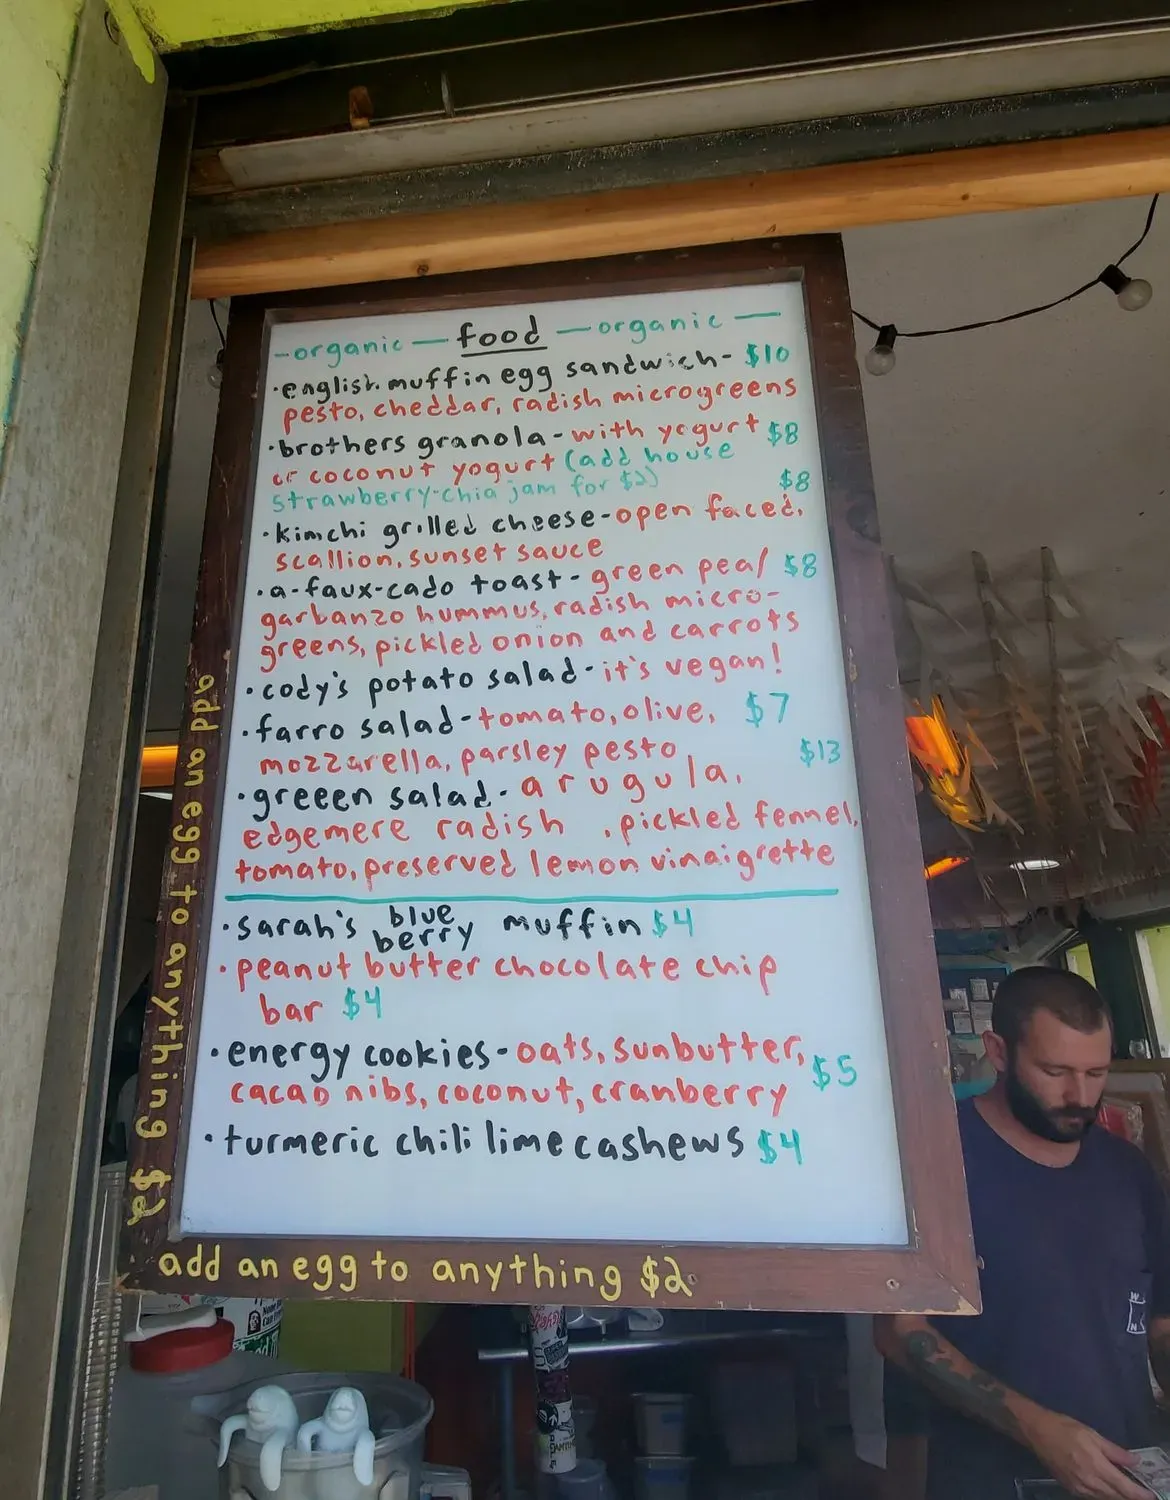 -organic — food — organic —
·english muffin egg sandwich- $10
pesto, cheddar, radish microgreens
·brothers granola-with yogurt $8
or coconut yogurt (add house
strawberry-chia jam for $2)
$8
·kimchi grilled cheese-open faced,
scallion, sunset sauce
·a-faux-cado toast-green pea/ $8
garbanzo hummus, radish micro-
greens, pickled onion and carrots
·cody's potato salad-it's vegan!
·farro salad-tomato, olive, $7
mozzarella, parsley pesto
$13
·greeen salad-arugula,
edgemere radish , pickled fennel,
tomato, preserved lemon vinaigrette
·sarah's blue
berry muffin $4
·peanut butter chocolate chip
bar $4
·energy cookies-oats, sunbutter,
cacao nibs, coconut, cranberry $5
·turmeric chili lime cashews $4
add an egg to anything $2
add an egg to anything $2